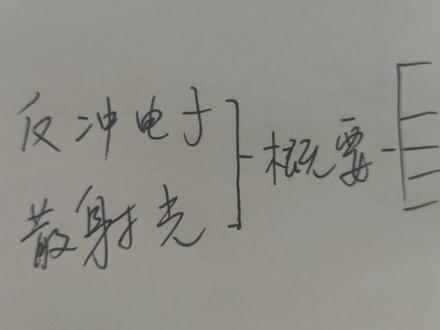 反冲电子
散射光
概要